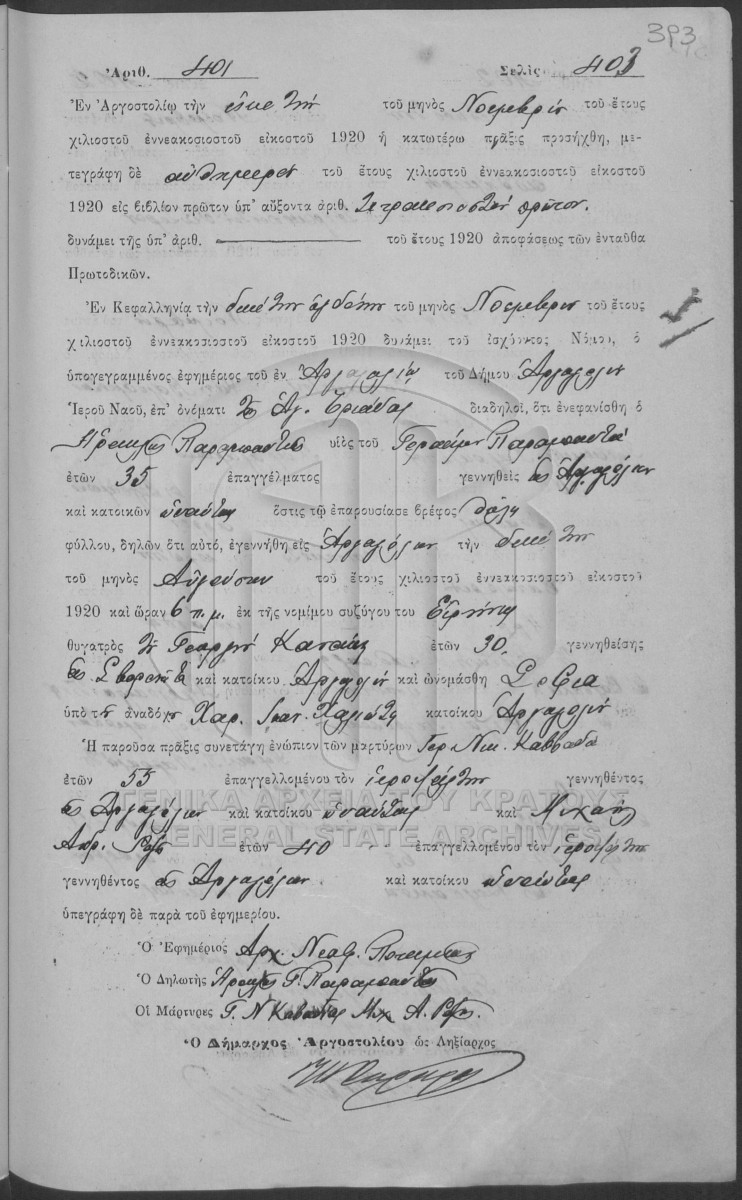 393
Ἀριθ. 401 Σελὶς 403
Ἐν Ἀργοστολίῳ τὴν εἰκοστὴν τοῦ μηνὸς Νοεμβρίου τοῦ ἔτους
χιλιοστοῦ ἐννεακοσιοστοῦ εἰκοστοῦ 1920 ἡ κατωτέρω πρᾶξις προσήχθη, με-
τεγράφη δὲ αὐθημερὸν τοῦ ἔτους χιλιοστοῦ ἐννεακοσιοστοῦ εἰκοστοῦ
1920 εἰς βιβλίον πρῶτον ὑπ' αὔξοντα ἀριθ. Τετρακοσιοστὸν πρῶτον.
δυνάμει τῆς ὑπ' ἀριθ. τοῦ ἔτους 1920 ἀποφάσεως τῶν ἐνταῦθα
Πρωτοδικῶν.
Ἐν Κεφαλληνίᾳ τὴν δεκάτην ἑβδόμην τοῦ μηνὸς Νοεμβρίου τοῦ ἔτους
χιλιοστοῦ ἐννεακοσιοστοῦ εἰκοστοῦ 1920 δυνάμει τοῦ ἰσχύοντος Νόμου, ὁ
ὑπογεγραμμένος ἐφημέριος τοῦ ἐν Ἀργοστολίῳ τοῦ Δήμου Ἀργοστολίου
Ἱεροῦ Ναοῦ, ἐπ' ὀνόματι τῆς Ἁγ. Τριάδος διαδηλοῖ, ὅτι ἐνεφανίσθη ὁ
Ἡρακλῆς υἱὸς τοῦ Γερασίμου
ἐτῶν 35 ἐπαγγέλματος γεννηθεὶς εἰς Ἀργοστόλιον
καὶ κατοικῶν ὡσαύτως ὅστις τῷ ἐπαρουσίασε βρέφος θήλυ
φύλλου, δηλῶν ὅτι αὐτό, ἐγεννήθη εἰς Ἀργοστόλιον τὴν δεκάτην
τοῦ μηνὸς Αὐγούστου τοῦ ἔτους χιλιοστοῦ ἐννεακοσιοστοῦ εἰκοστοῦ
1920 καὶ ὥραν 6 π.μ. ἐκ τῆς νομίμου συζύγου του Εἰρήνης
θυγατρὸς τοῦ Γεωργίου ἐτῶν 30. γεννηθείσης
εἰς καὶ κατοίκου Ἀργοστολίου καὶ ὠνομάσθη Σοφία
ὑπὸ τοῦ ἀναδόχου Χαρ. Ἰωαν. κατοίκου Ἀργοστολίου
Ἡ παροῦσα πρᾶξις συνετάγη ἐνώπιον τῶν μαρτύρων Γερ. Νικ. Καββαδᾶ
ἐτῶν 55 ἐπαγγελλομένου τὸν ἱεροψάλτην γεννηθέντος
εἰς Ἀργοστόλιον καὶ κατοίκου ὡσαύτως καὶ Μιχαὴλ
Ἀνδρ. ἐτῶν 40 ἐπαγγελλομένου τὸν ἱεροψάλτην
γεννηθέντος εἰς Ἀργοστόλιον καὶ κατοίκου ὡσαύτως
ὑπεγράφη δὲ παρὰ τοῦ ἐφημερίου.
Ὁ Ἐφημέριος Ἀρχ.
Ὁ Δηλωτὴς Ἡρακλῆς Γ.
Οἱ Μάρτυρες Γ. Ν. Καββαδᾶς Μιχ. Α.
Ὁ Δήμαρχος Ἀργοστολίου ὡς Ληξίαρχος
ΓΕΝΙΚΑ ΑΡΧΕΙΑ ΤΟΥ ΚΡΑΤΟΥΣ
GENERAL STATE ARCHIVES